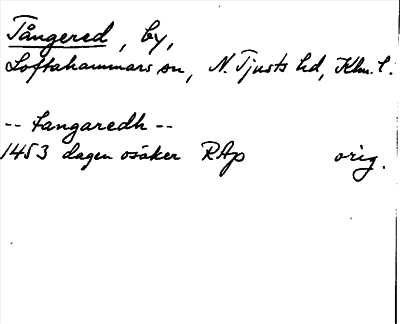 Tångered, by,
Loftahammars sn, N. Tjusts hd, Klm. l.
-- tangaredh --
1453 dagen osäker RAp orig.